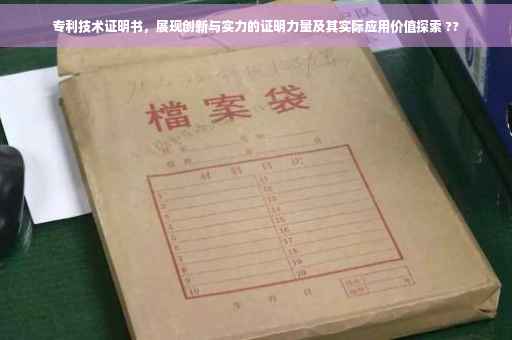 专利技术证明书，展现创新与实力的证明力量及其实际应用价值探索 ??
檔案袋
材料目次
1
2
3
4
5
6
7
8
9
10
11
12
13
14
15
16
17
18
19
20
年 月 日